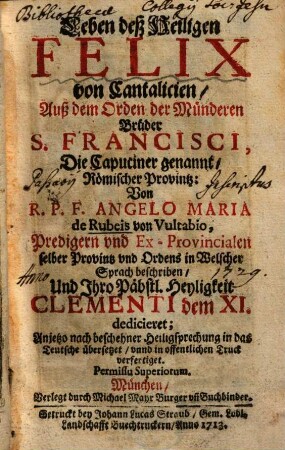 Bibliothecæ Collegij Soc: Jesu
Leben deß Heiligen
FELIX
von Cantalicien/
Auß dem Orden der Münderen
Brüder
S. FRANCISCI,
Die Capuciner genannt/
Passavij Inscriptus
Römischer Provintz:
Von
R. P. F. ANGELO MARIA
de Rubeis von Vultabio,
Predigern vnd Ex-Provincialen
selber Provintz vnd Ordens in Welscher
Sprach beschriben/
Anno 1729.
Und Ihro Päbstl. Heyligkeit
CLEMENTI dem XI.
dedicieret;
Anjetzo nach beschehner Heiligsprechung in das
Teutsche übersetzet/ vnnd in offentlichen Truck
verfertiget.
Permissu Superiorum.
München/
Verlegt durch Michael Mayr Burger vñ Buchbinder.
Getruckt bey Johann Lucas Straub/ Gem. Lobl.
Landschafft Buechtruckern/ Anno 1713.